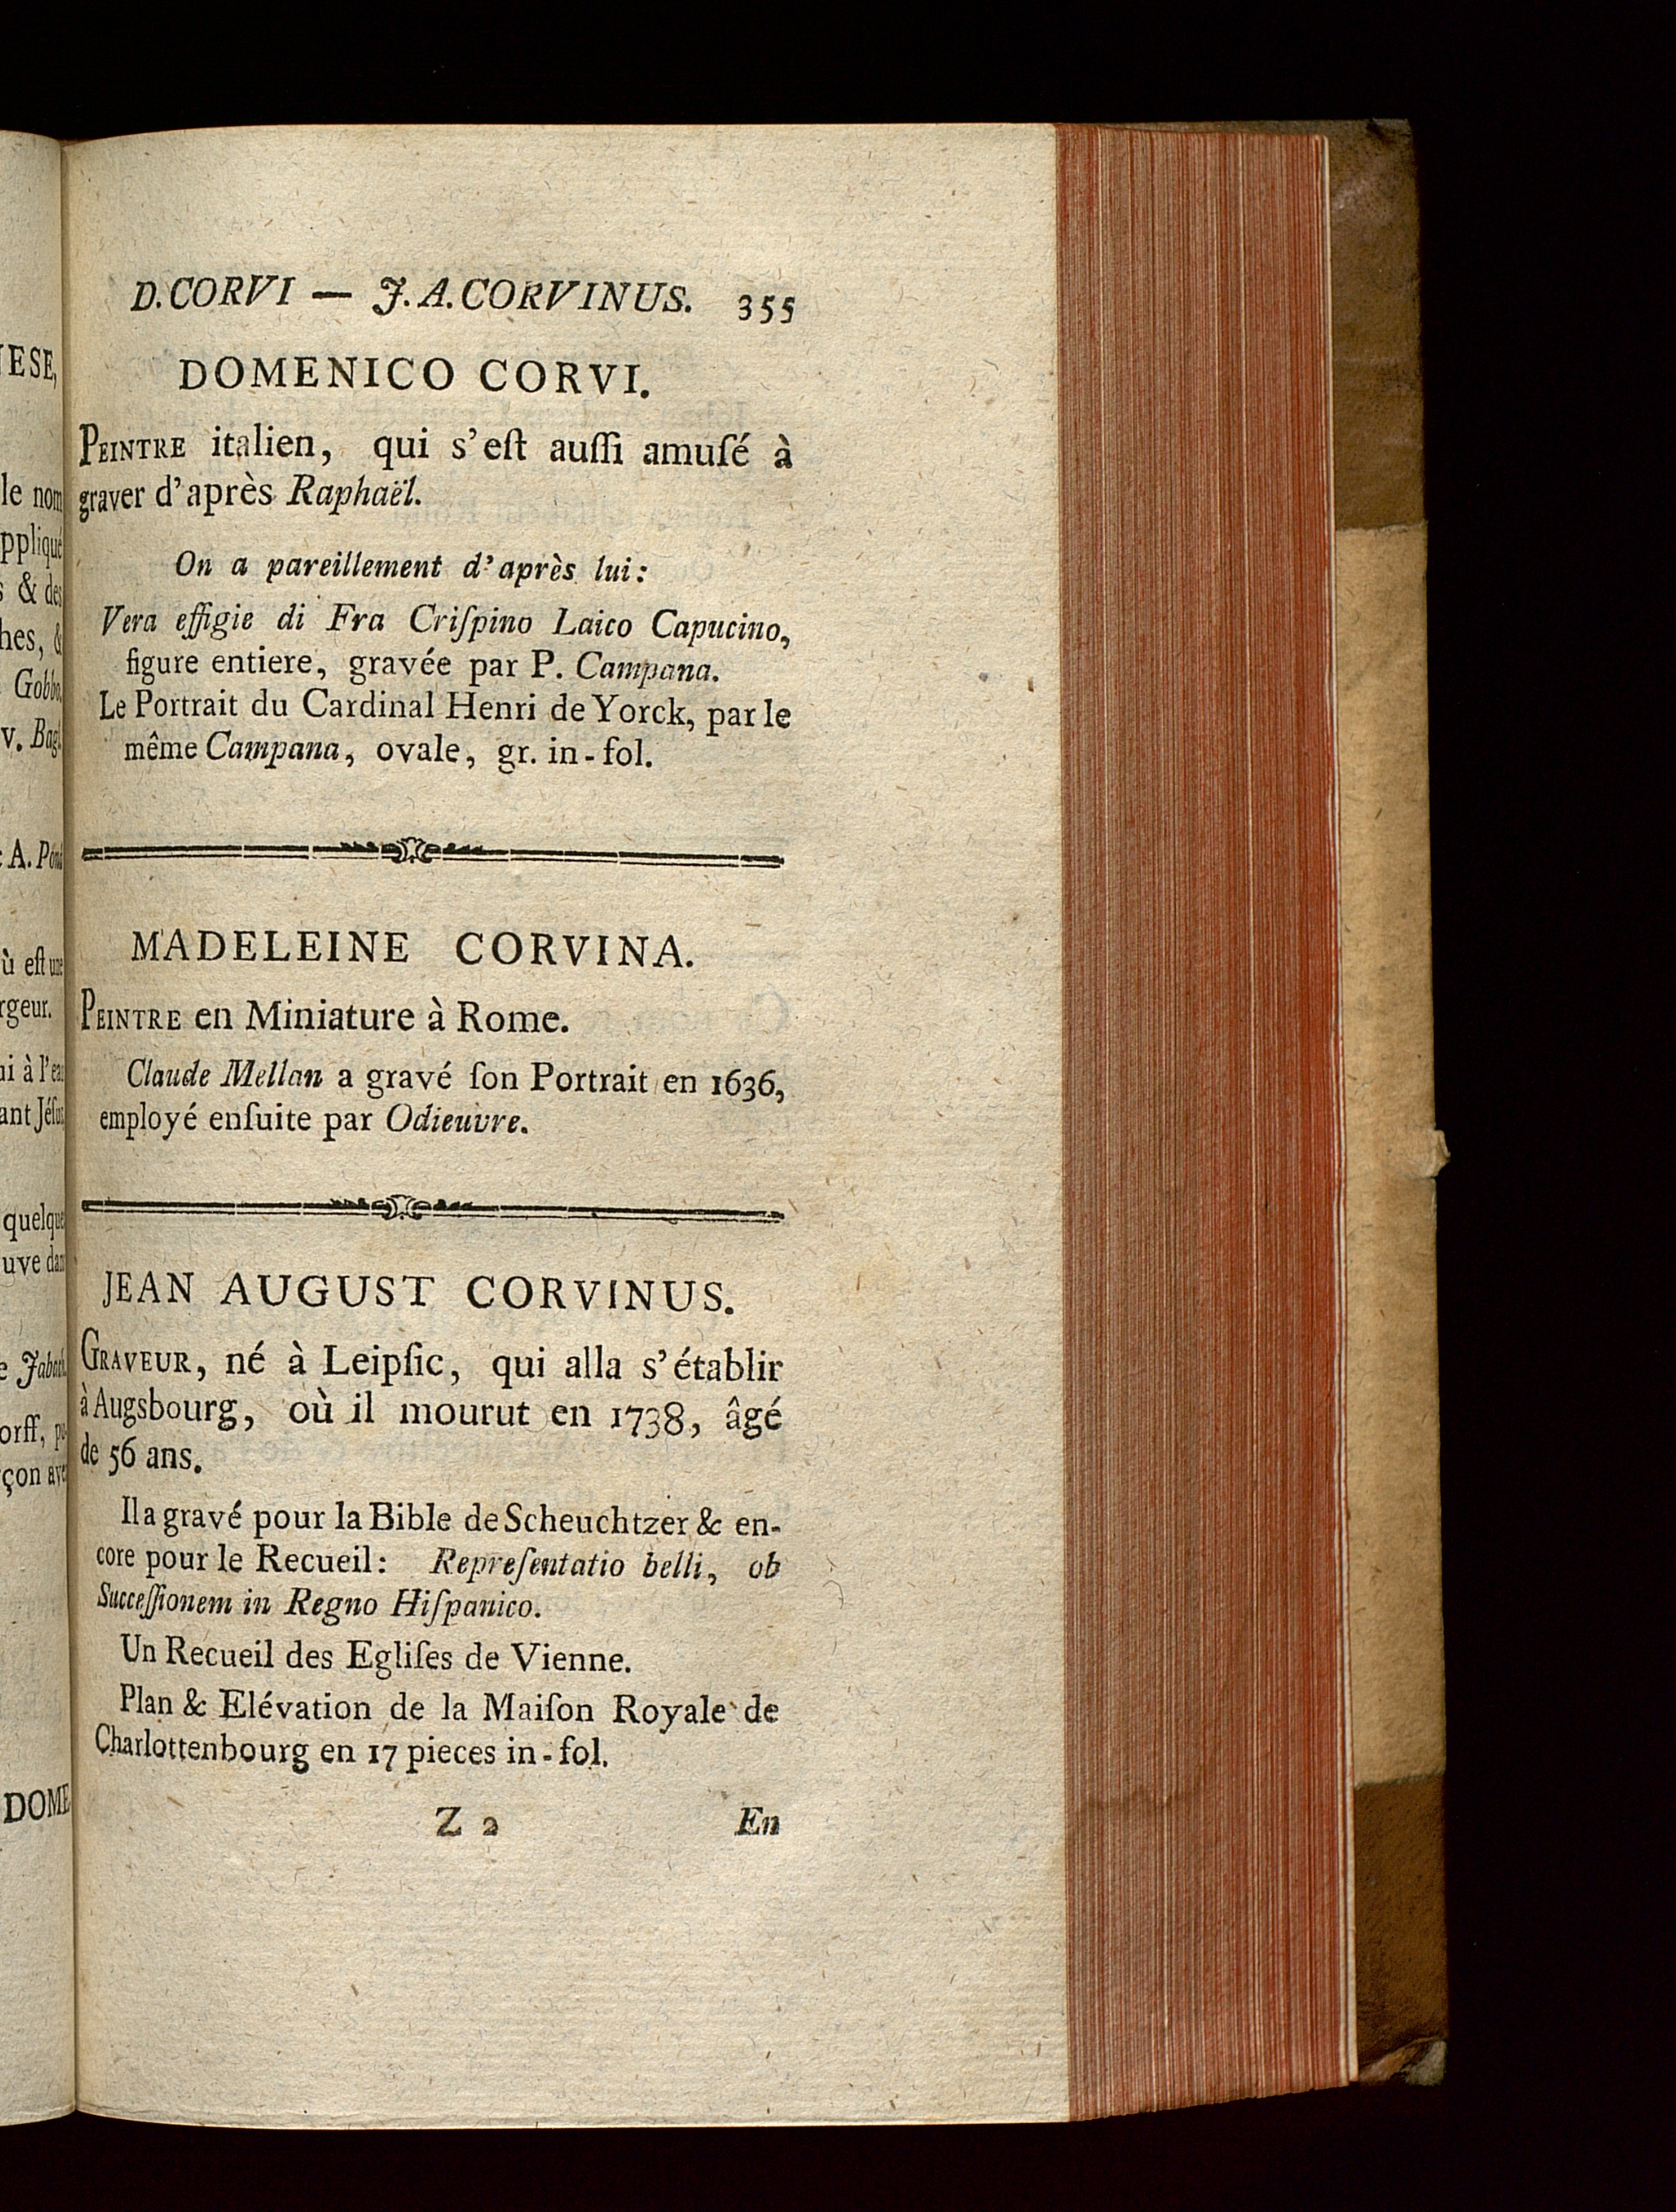 D. CORVI — J. A. CORVINUS. 355
DOMENICO CORVI.
PEINTRE italien, qui s'eſt auſſi amuſé à
graver d'après Raphaël.
On a pareillement d'après lui:
Vera effigie di Fra Criſpino Laico Capucino,
figure entiere, gravée par P. Campana.
Le Portrait du Cardinal Henri de Yorck, par le
même Campana, ovale, gr. in-fol.
MADELEINE CORVINA.
PEINTRE en Miniature à Rome.
Claude Mellan a gravé ſon Portrait en 1636,
employé enſuite par Odieuvre.
JEAN AUGUST CORVINUS.
GRAVEUR, né à Leipſic, qui alla s'établir
à Augsbourg, où il mourut en 1738, âgé
de 56 ans.
Il a gravé pour la Bible de Scheuchtzer & en-
core pour le Recueil: Repreſentatio belli, ob
Succeſſionem in Regno Hiſpanico.
Un Recueil des Egliſes de Vienne.
Plan & Elévation de la Maiſon Royale de
Charlottenbourg en 17 pieces in-fol.
Z 2 En